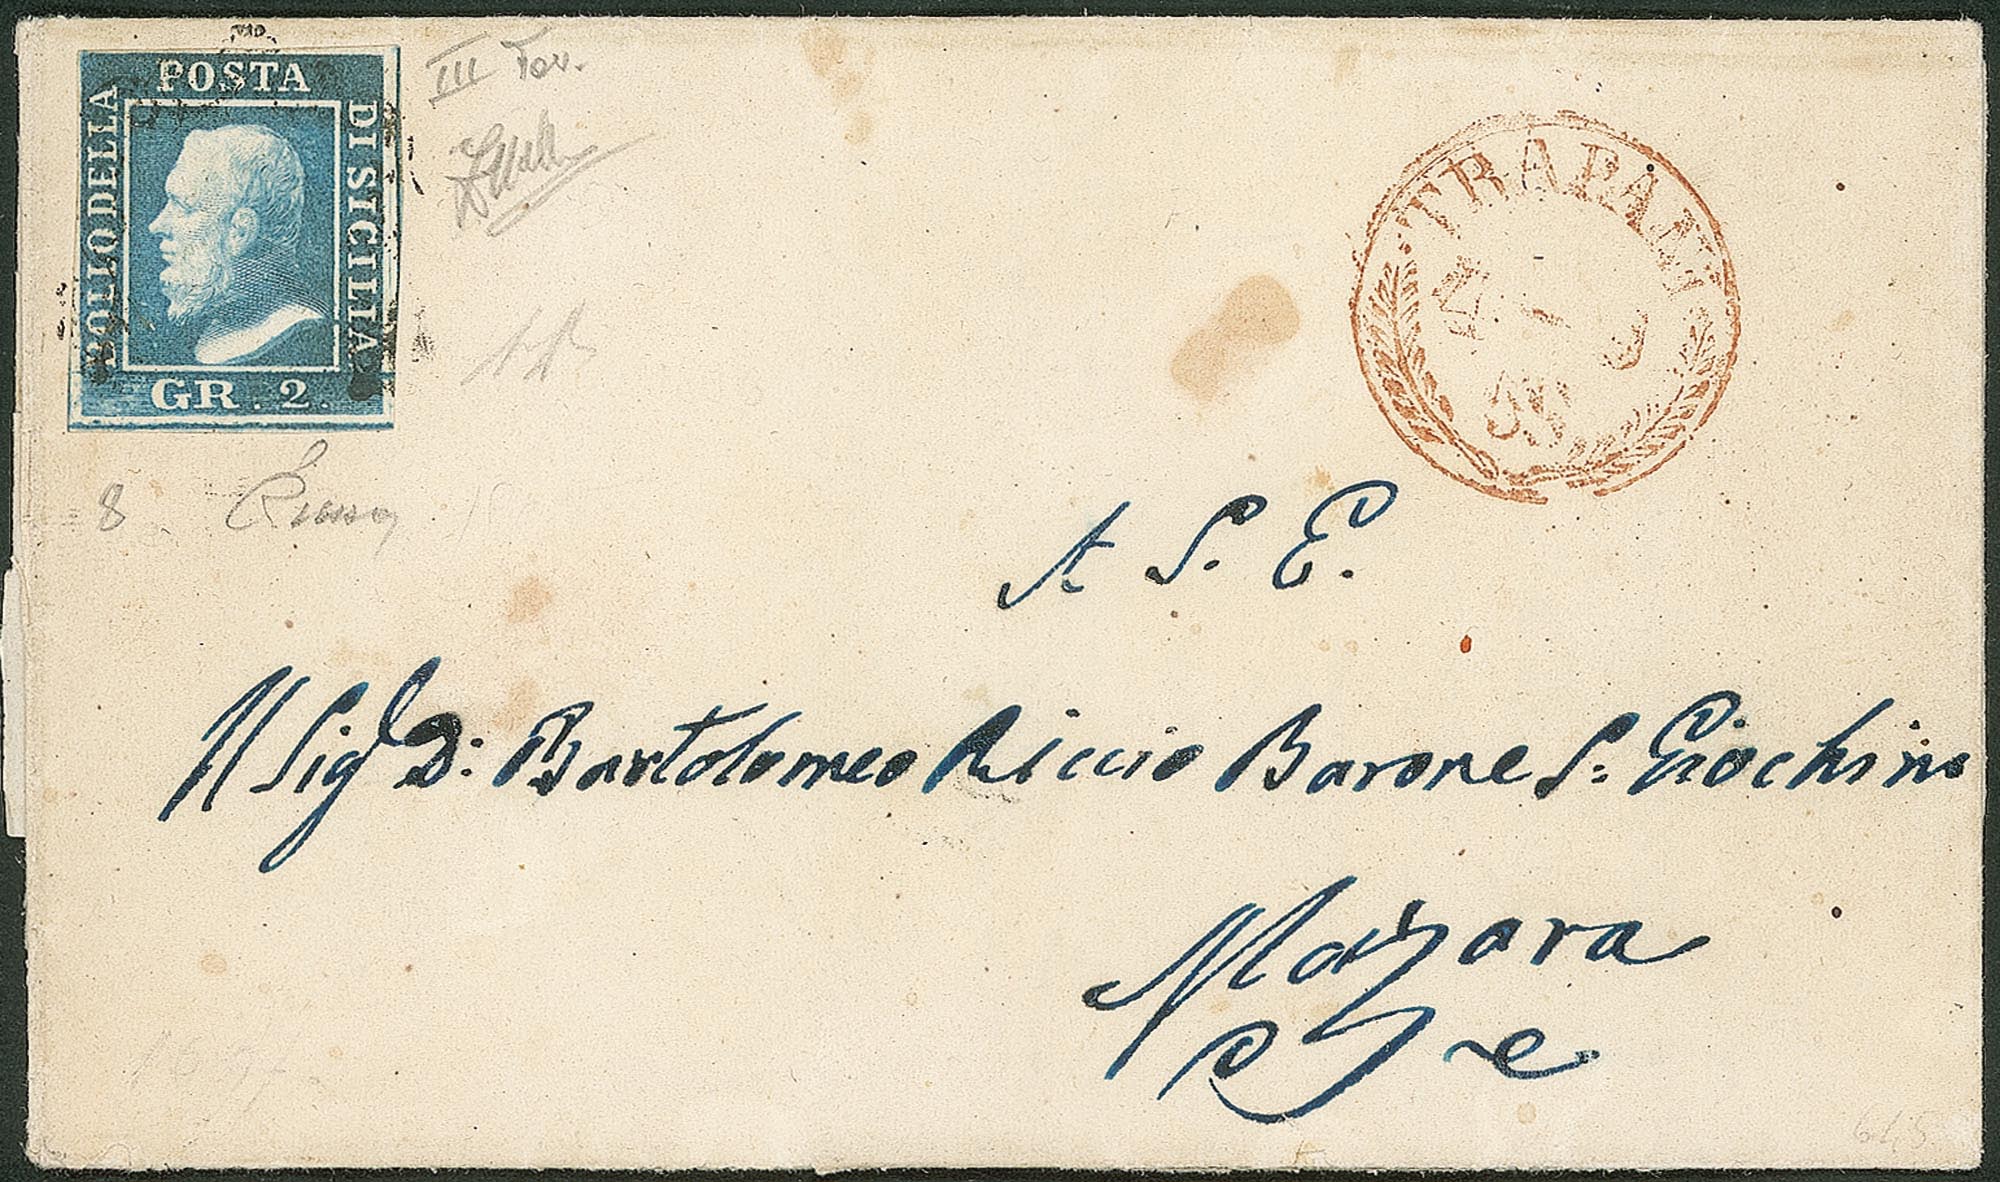 POSTA
BOLLO DELLA
DI SICILIA
GR. 2.
III Tav.
TRAPANI
8
A S. E.
Al Sig D: Bartolomeo Riccio Barone S: Giochino
Mazara
645